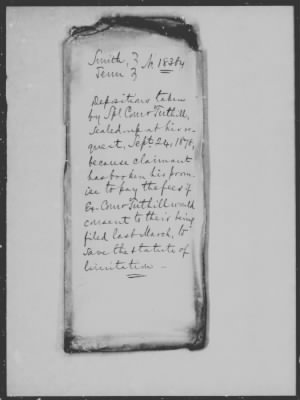 Smith, } No 18384
Tenn }
Depositions taken
by Spl Com'r Tuthill,
sealed up at his re-
quest, Sept. 24, 1878,
because claimant
has broken his prom-
ise to pay the fees if
Ex. Com'r Tuthill would
consent to their being
filed last March, to
save the statute of
limitation –